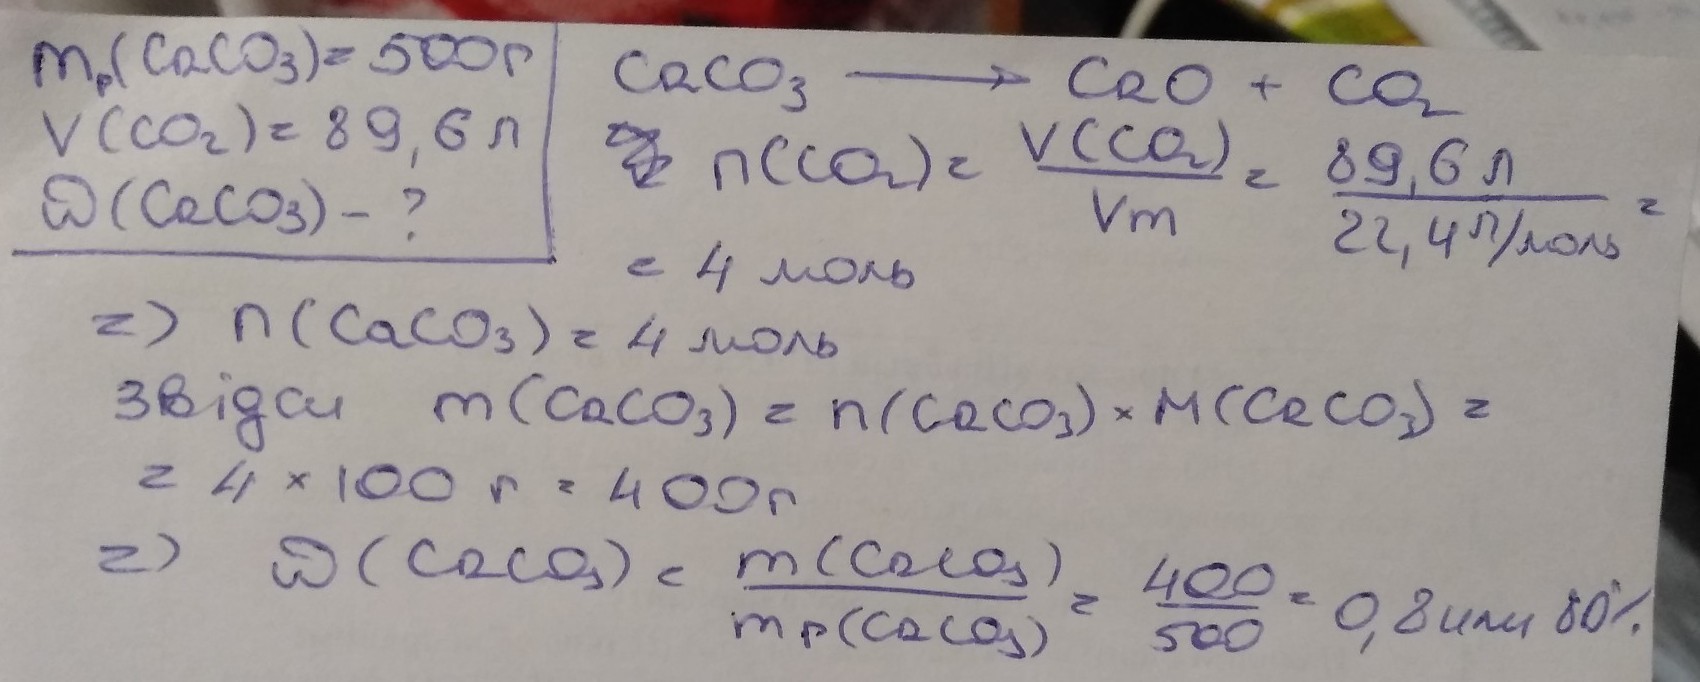 mр(CaCO3) = 500г
V(CO2) = 89,6 л
ω(CaCO3) - ?
CaCO3 ⟶ CaO + CO2
n(CO2) = V(CO2) / Vm = 89,6 л / 22,4 л/моль =
= 4 моль
=> n(CaCO3) = 4 моль
звідси m(CaCO3) = n(CaCO3) × M(CaCO3) =
= 4 × 100 г = 400г
=> ω(CaCO3) = m(CaCO3) / mр(CaCO3) = 400 / 500 = 0,8 или 80%.